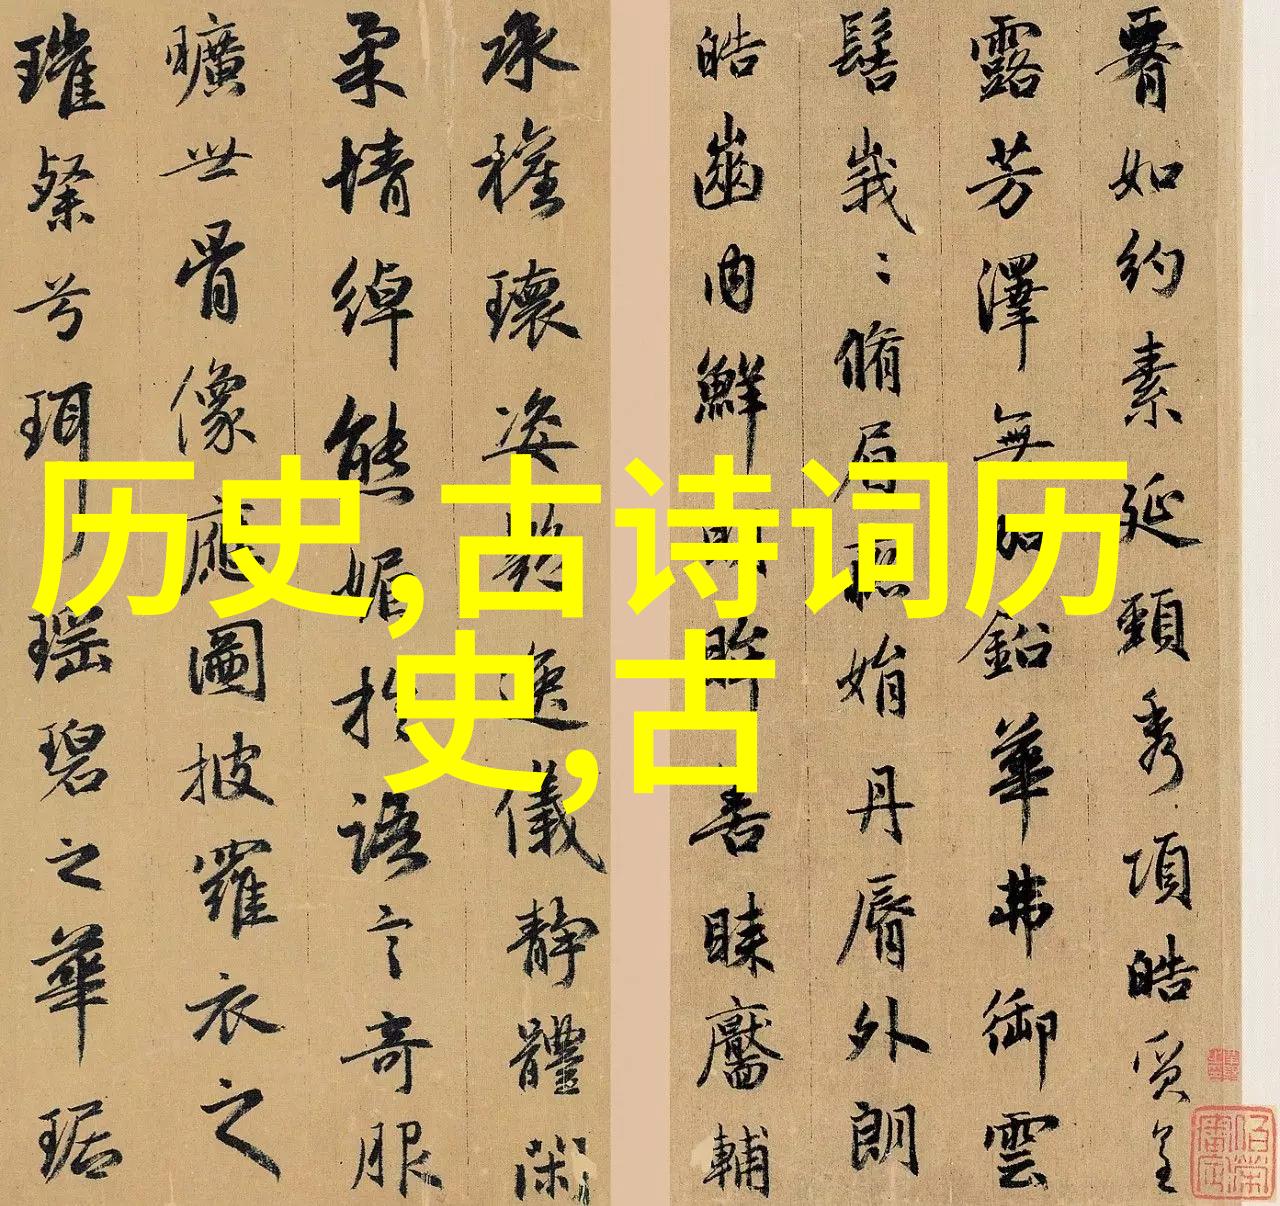 脣如約素延頸秀項皓質呈
露芳澤無加鉛華弗御雲
髻峩〻脩眉聯娟丹脣外朗
皓齒内鮮明眸善睞靨輔
承權瓌姿豔逸儀靜體閑
柔情綽態媚於語言奇服
曠世骨像應圖披羅衣之
璀粲兮珥瑶碧之華琚
历史,古诗词历
史,古